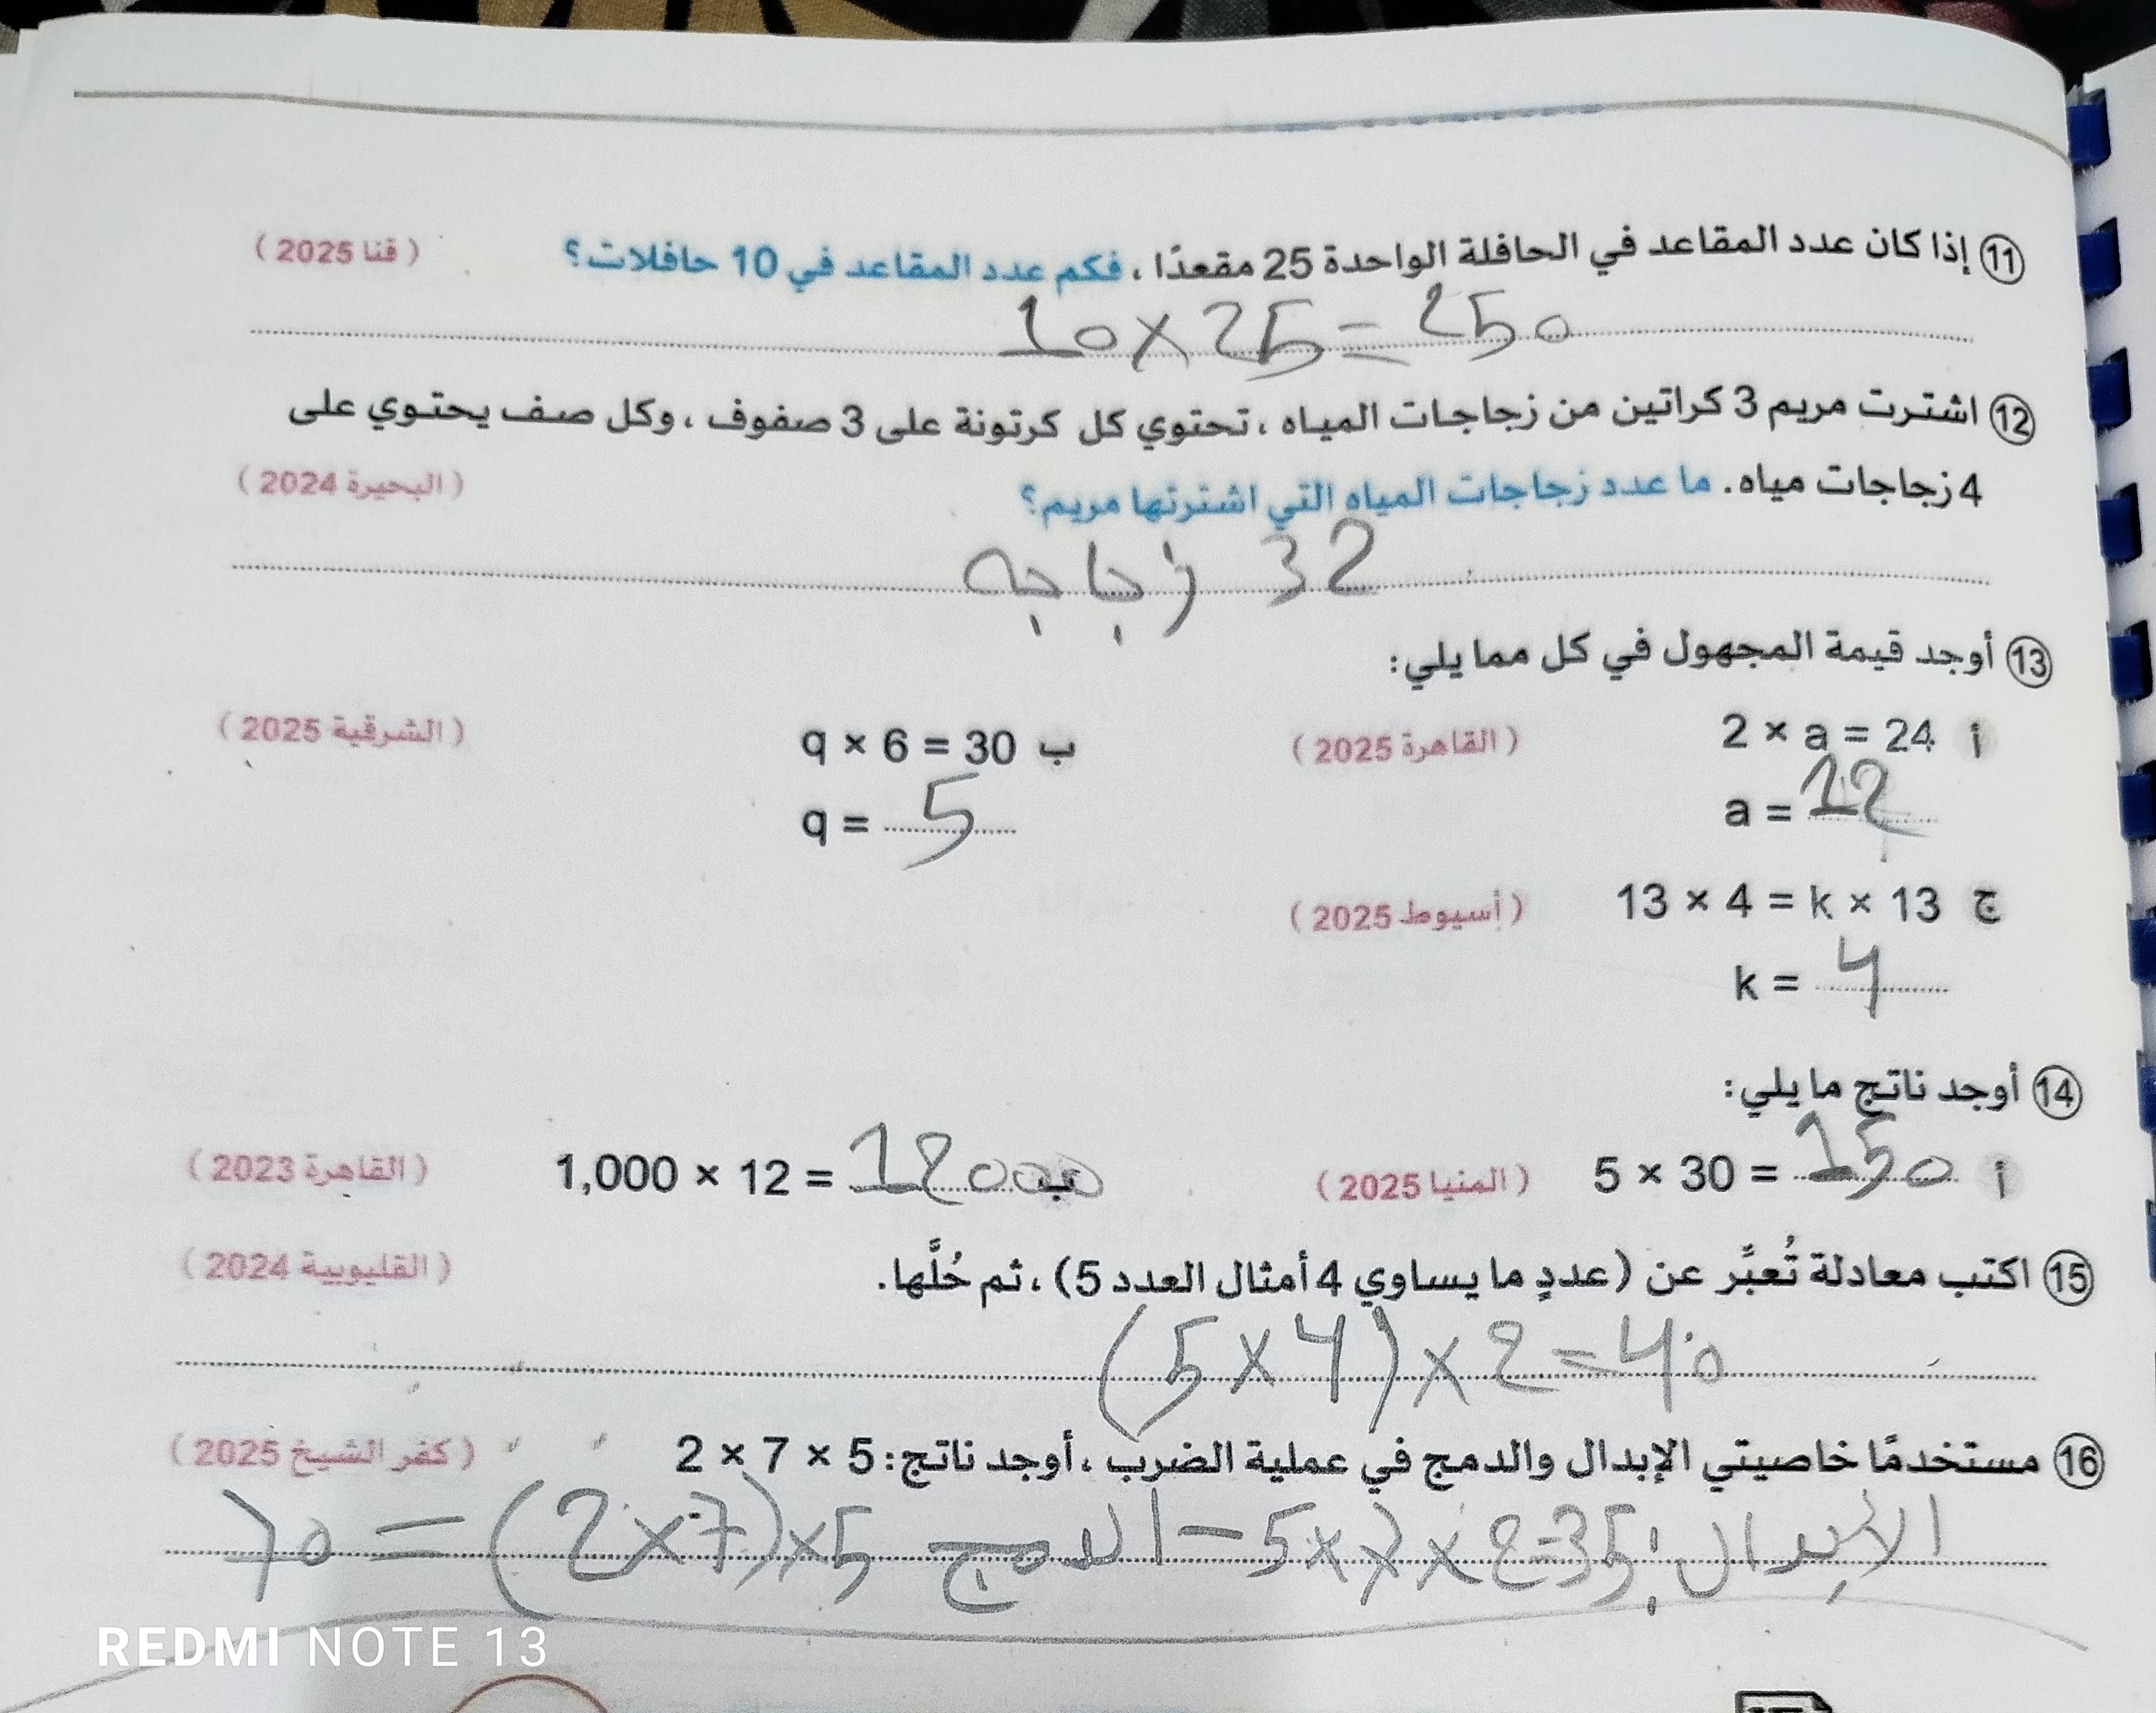 11 إذا كان عدد المقاعد في الحافلة الواحدة 25 مقعدًا ، فكم عدد المقاعد في 10 حافلات؟ ( قنا 2025 )
10 × 25 = 250
12 اشترت مريم 3 كراتين من زجاجات المياه ، تحتوي كل كرتونة على 3 صفوف ، وكل صف يحتوي على
4 زجاجات مياه. ما عدد زجاجات المياه التي اشترتها مريم؟ ( البحيرة 2024 )
32 زجاجه
13 أوجد قيمة المجهول في كل مما يلي:
أ 2 × a = 24 ( القاهرة 2025 ) ب q × 6 = 30 ( الشرقية 2025 )
a = 12 q = 5
ج 13 × 4 = k × 13 ( أسيوط 2025 )
k = 4
14 أوجد ناتج ما يلي:
أ 5 × 30 = 150 ( المنيا 2025 ) ب 1,000 × 12 = 12000 ( القاهرة 2023 )
15 اكتب معادلة تُعبِّر عن (عددٍ ما يساوي 4 أمثال العدد 5) ، ثم حُلَّها. ( القليوبية 2024 )
(5 × 4) × 2 = 40
16 مستخدمًا خاصيتي الإبدال والدمج في عملية الضرب ، أوجد ناتج: 2 × 7 × 5 ( كفر الشيخ 2025 )
الابدال: 5 × 7 × 2 = 35 - الدمج (2 × 7) × 5 = 70
REDMI NOTE 13